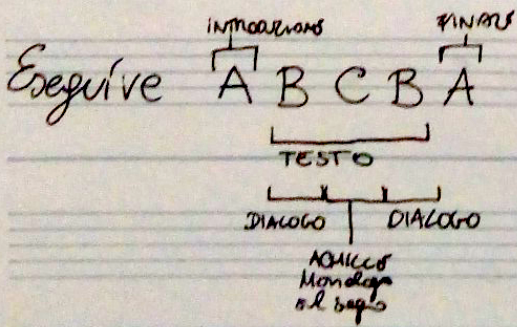 INTRODUZIONE FINALE
Eseguire A B C B A
TESTO
DIALOGO DIALOGO
ACHILLE
Monologo
al sogno